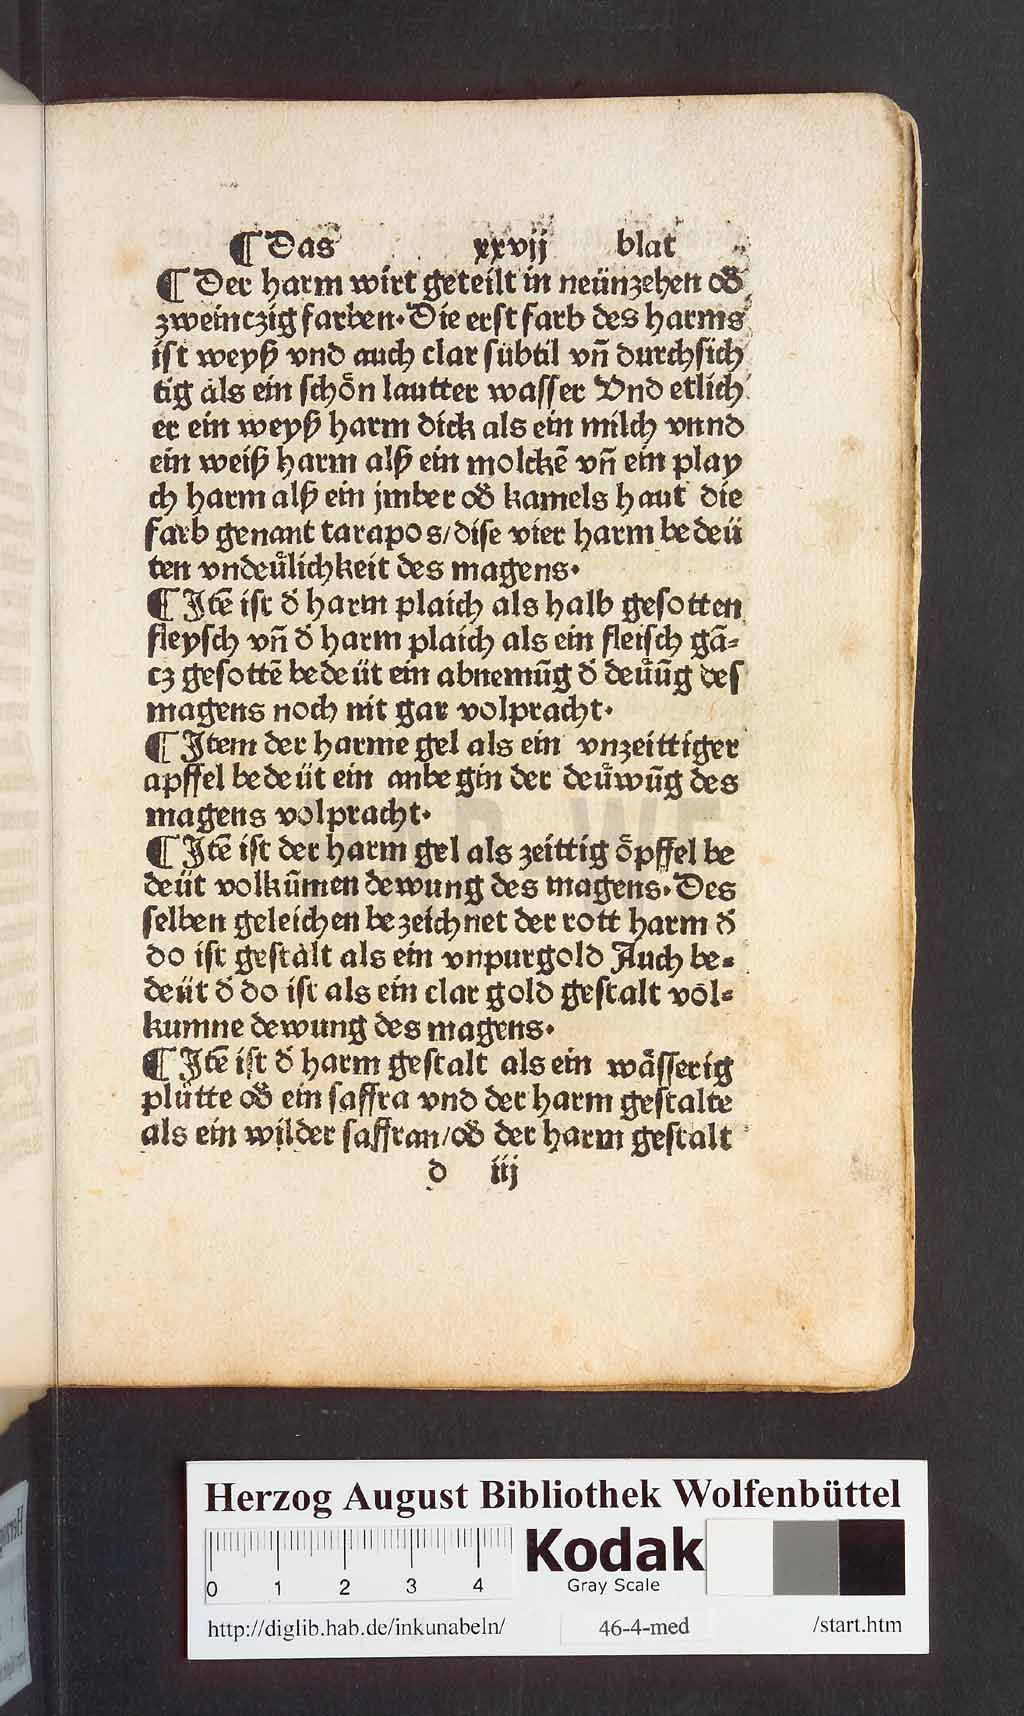 ¶ Das xxvij blat
¶ Der harm wirt geteilt in neünzehen od̄
zweinczig farben. Die erst farb des harms
ist weyß vnd auch clar subtil vn̄ durchsich
tig als ein schoͤn lautter wasser Vnd etlich
er ein weyß harm dick als ein milch vnnd
ein weiß harm alß ein molckē vn̄ ein play
ch harm alß ein jmber od̄ kamels haut die
farb genant tarapos/dise vier harm bedeü
ten vndeuͤlichkeit des magens.
¶ Itē ist d̄ harm plaich als halb gesotten
fleysch vn̄ d̄ harm plaich als ein fleisch gā=
cz gesottē bedeüt ein abnemūg d̄ deuͤūg des
magens noch nit gar volpracht.
¶ Item der harme gel als ein vnzeittiger
apffel bedeüt ein anbegin der deuͤwūg des
magens volpracht.
¶ Itē ist der harm gel als zeittig oͤpffel be
deüt volkūmen dewung des magens. Des
selben geleichen bezeichnet der rott harm d̄
do ist gestalt als ein vnpurgold Auch be=
deüt d̄ do ist als ein clar gold gestalt vol=
kumne dewung des magens.
¶ Itē ist d̄ harm gestalt als ein waͤsserig
plütte od̄ ein saffra vnd der harm gestalte
als ein wilder saffran/od̄ der harm gestalt
d iij
HAB WF
Herzog August Bibliothek Wolfenbüttel
0 1 2 3 4
Kodak
Gray Scale
http://diglib.hab.de/inkunabeln/ 46-4-med /start.htm